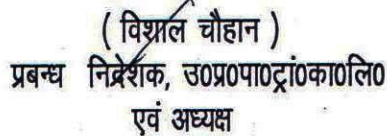 ( विशाल चौहान )
प्रबन्ध निदेशक, उ0प्र0पा0ट्रां0का0लि0
एवं अध्यक्ष